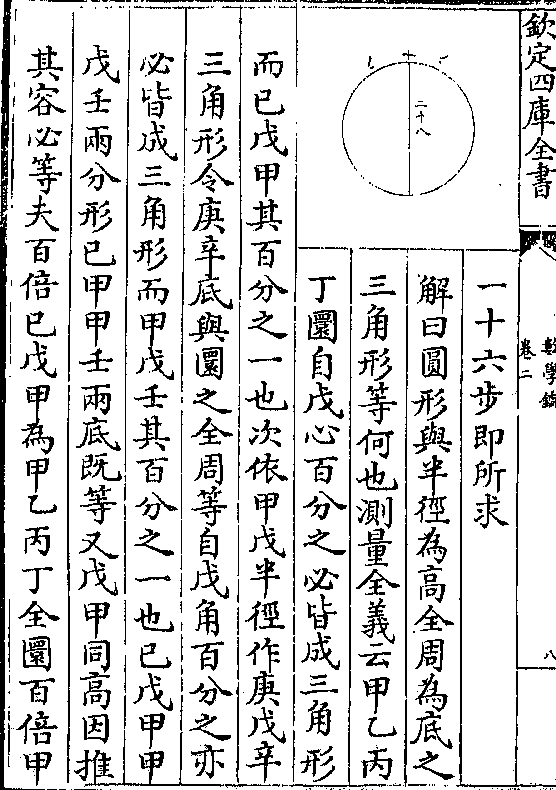 欽定四庫全書
數學鑰
卷二
八
一十六步即所求
解曰圓形與半徑為高全周為底之
三角形等何也測量全義云甲乙丙
丁圜自戊心百分之必皆成三角形
而已戊甲其百分之一也次依甲戊半徑作庚戊辛
三角形令庚辛底與圜之全周等自戊角百分之亦
必皆成三角形而甲戊壬其百分之一也已戊甲甲
戊壬兩分形已甲甲壬兩底既等又戊甲同高因推
其容必等夫百倍已戊甲為甲乙丙丁全圜百倍甲
二十八